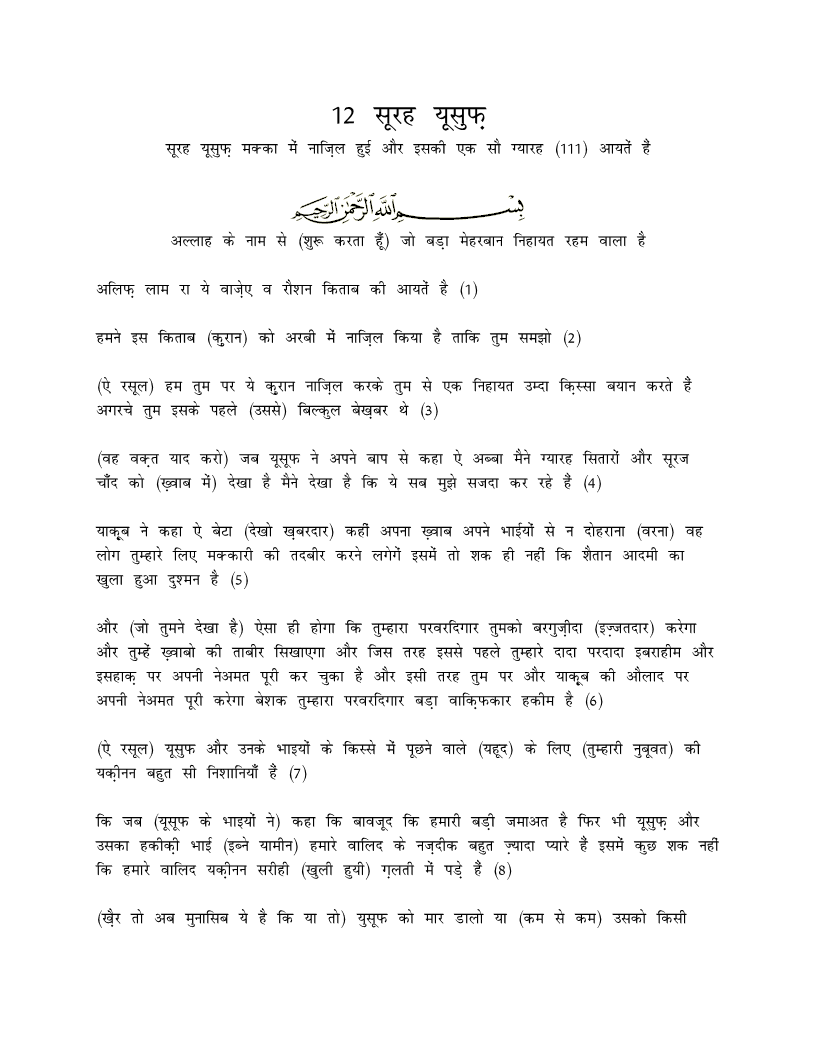 12 सूरह यूसुफ़
सूरह यूसुफ़ मक्का में नाज़िल हुई और इसकी एक सौ ग्यारह (111) आयतें हैं
بِسْمِ اللَّهِ الرَّحْمَٰنِ الرَّحِيمِ
अल्लाह के नाम से (शुरू करता हूँ) जो बड़ा मेहरबान निहायत रहम वाला है
अलिफ़ लाम रा ये वाज़ेए व रौशन किताब की आयतें है (1)
हमने इस किताब (क़ुरान) को अरबी में नाज़िल किया है ताकि तुम समझो (2)
(ऐ रसूल) हम तुम पर ये क़ुरान नाज़िल करके तुम से एक निहायत उम्दा क़िस्सा बयान करते हैं
अगरचे तुम इसके पहले (उससे) बिल्कुल बेख़बर थे (3)
(वह वक़्त याद करो) जब यूसूफ ने अपने बाप से कहा ऐ अब्बा मैने ग्यारह सितारों और सूरज
चाँद को (ख़्वाब में) देखा है मैने देखा है कि ये सब मुझे सजदा कर रहे हैं (4)
याक़ूब ने कहा ऐ बेटा (देखो ख़बरदार) कहीं अपना ख़्वाब अपने भाईयों से न दोहराना (वरना) वह
लोग तुम्हारे लिए मक्कारी की तदबीर करने लगेगें इसमें तो शक ही नहीं कि शैतान आदमी का
खुला हुआ दुश्मन है (5)
और (जो तुमने देखा है) ऐसा ही होगा कि तुम्हारा परवरदिगार तुमको बरगुज़ीदा (इज़्जतदार) करेगा
और तुम्हें ख़्वाबो की ताबीर सिखाएगा और जिस तरह इससे पहले तुम्हारे दादा परदादा इबराहीम और
इसहाक़ पर अपनी नेअमत पूरी कर चुका है और इसी तरह तुम पर और याक़ूब की औलाद पर
अपनी नेअमत पूरी करेगा बेशक तुम्हारा परवरदिगार बड़ा वाक़िफकार हकीम है (6)
(ऐ रसूल) यूसुफ और उनके भाइयों के किस्से में पूछने वाले (यहूद) के लिए (तुम्हारी नुबूवत) की
यक़ीनन बहुत सी निशानियाँ हैं (7)
कि जब (यूसूफ के भाइयों ने) कहा कि बावजूद कि हमारी बड़ी जमाअत है फिर भी यूसुफ़ और
उसका हकीक़ी भाई (इब्ने यामीन) हमारे वालिद के नज़दीक बहुत ज़्यादा प्यारे हैं इसमें कुछ शक नहीं
कि हमारे वालिद यक़ीनन सरीही (खुली हुयी) ग़लती में पड़े हैं (8)
(ख़ैर तो अब मुनासिब ये है कि या तो) युसूफ को मार डालो या (कम से कम) उसको किसी